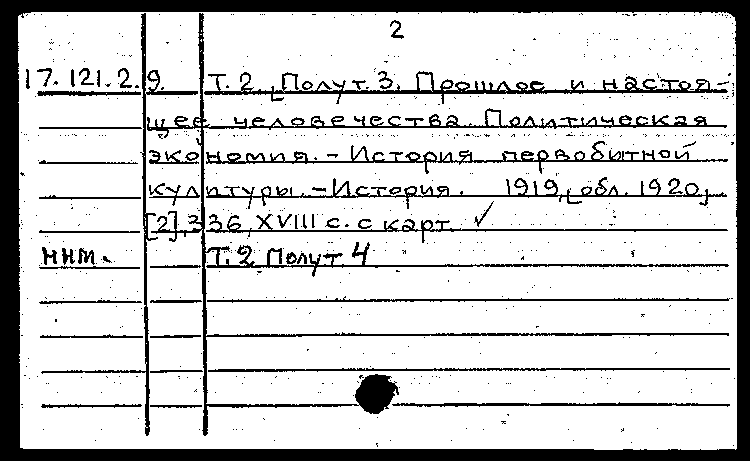 2
17.121.2.9. Т.2. [Полут. 3. Прошлое и настоя-
щее человечества. Политическая
экономия. - История первобытной
культуры. - История. 1919, [обл. 1920],
[2], 336, XVIII с. с карт. ✓
ннт. Т.2 Полут 4